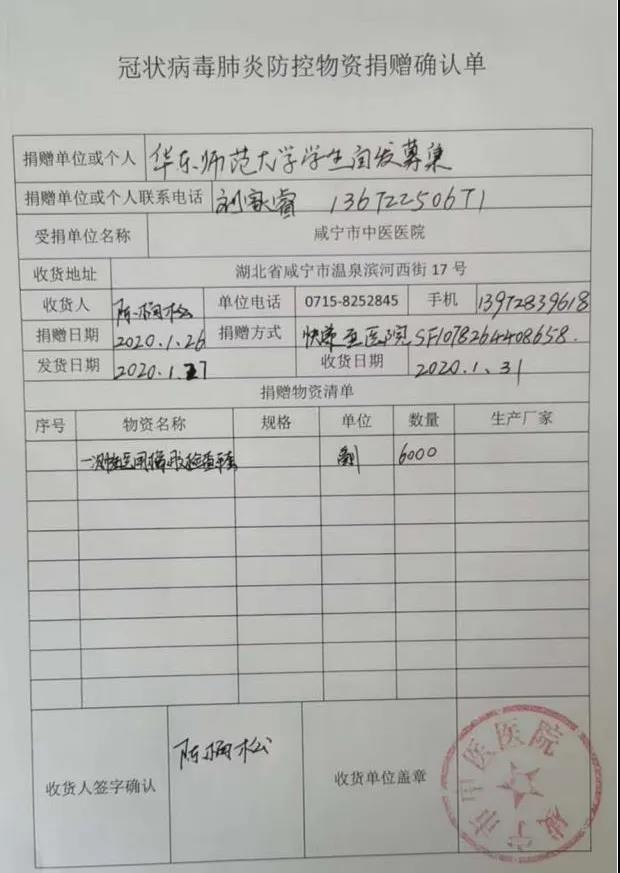 冠状病毒肺炎防控物资捐赠确认单
捐赠单位或个人 华东师范大学学生自发募集
捐赠单位或个人联系电话 刘家睿 13672250671
受捐单位名称 咸宁市中医医院
收货地址 湖北省咸宁市温泉滨河西街 17 号
收货人 陈柯松 单位电话 0715-8252845 手机 13972839618
捐赠日期 2020.1.26 捐赠方式 快递至医院SF1078264408658.
发货日期 2020.1.27 收货日期 2020.1.31
捐赠物资清单
序号 物资名称 规格 单位 数量 生产厂家
一次性医用橡胶检查手套 副 6000
收货人签字确认 陈柯松 收货单位盖章
咸宁市中医医院